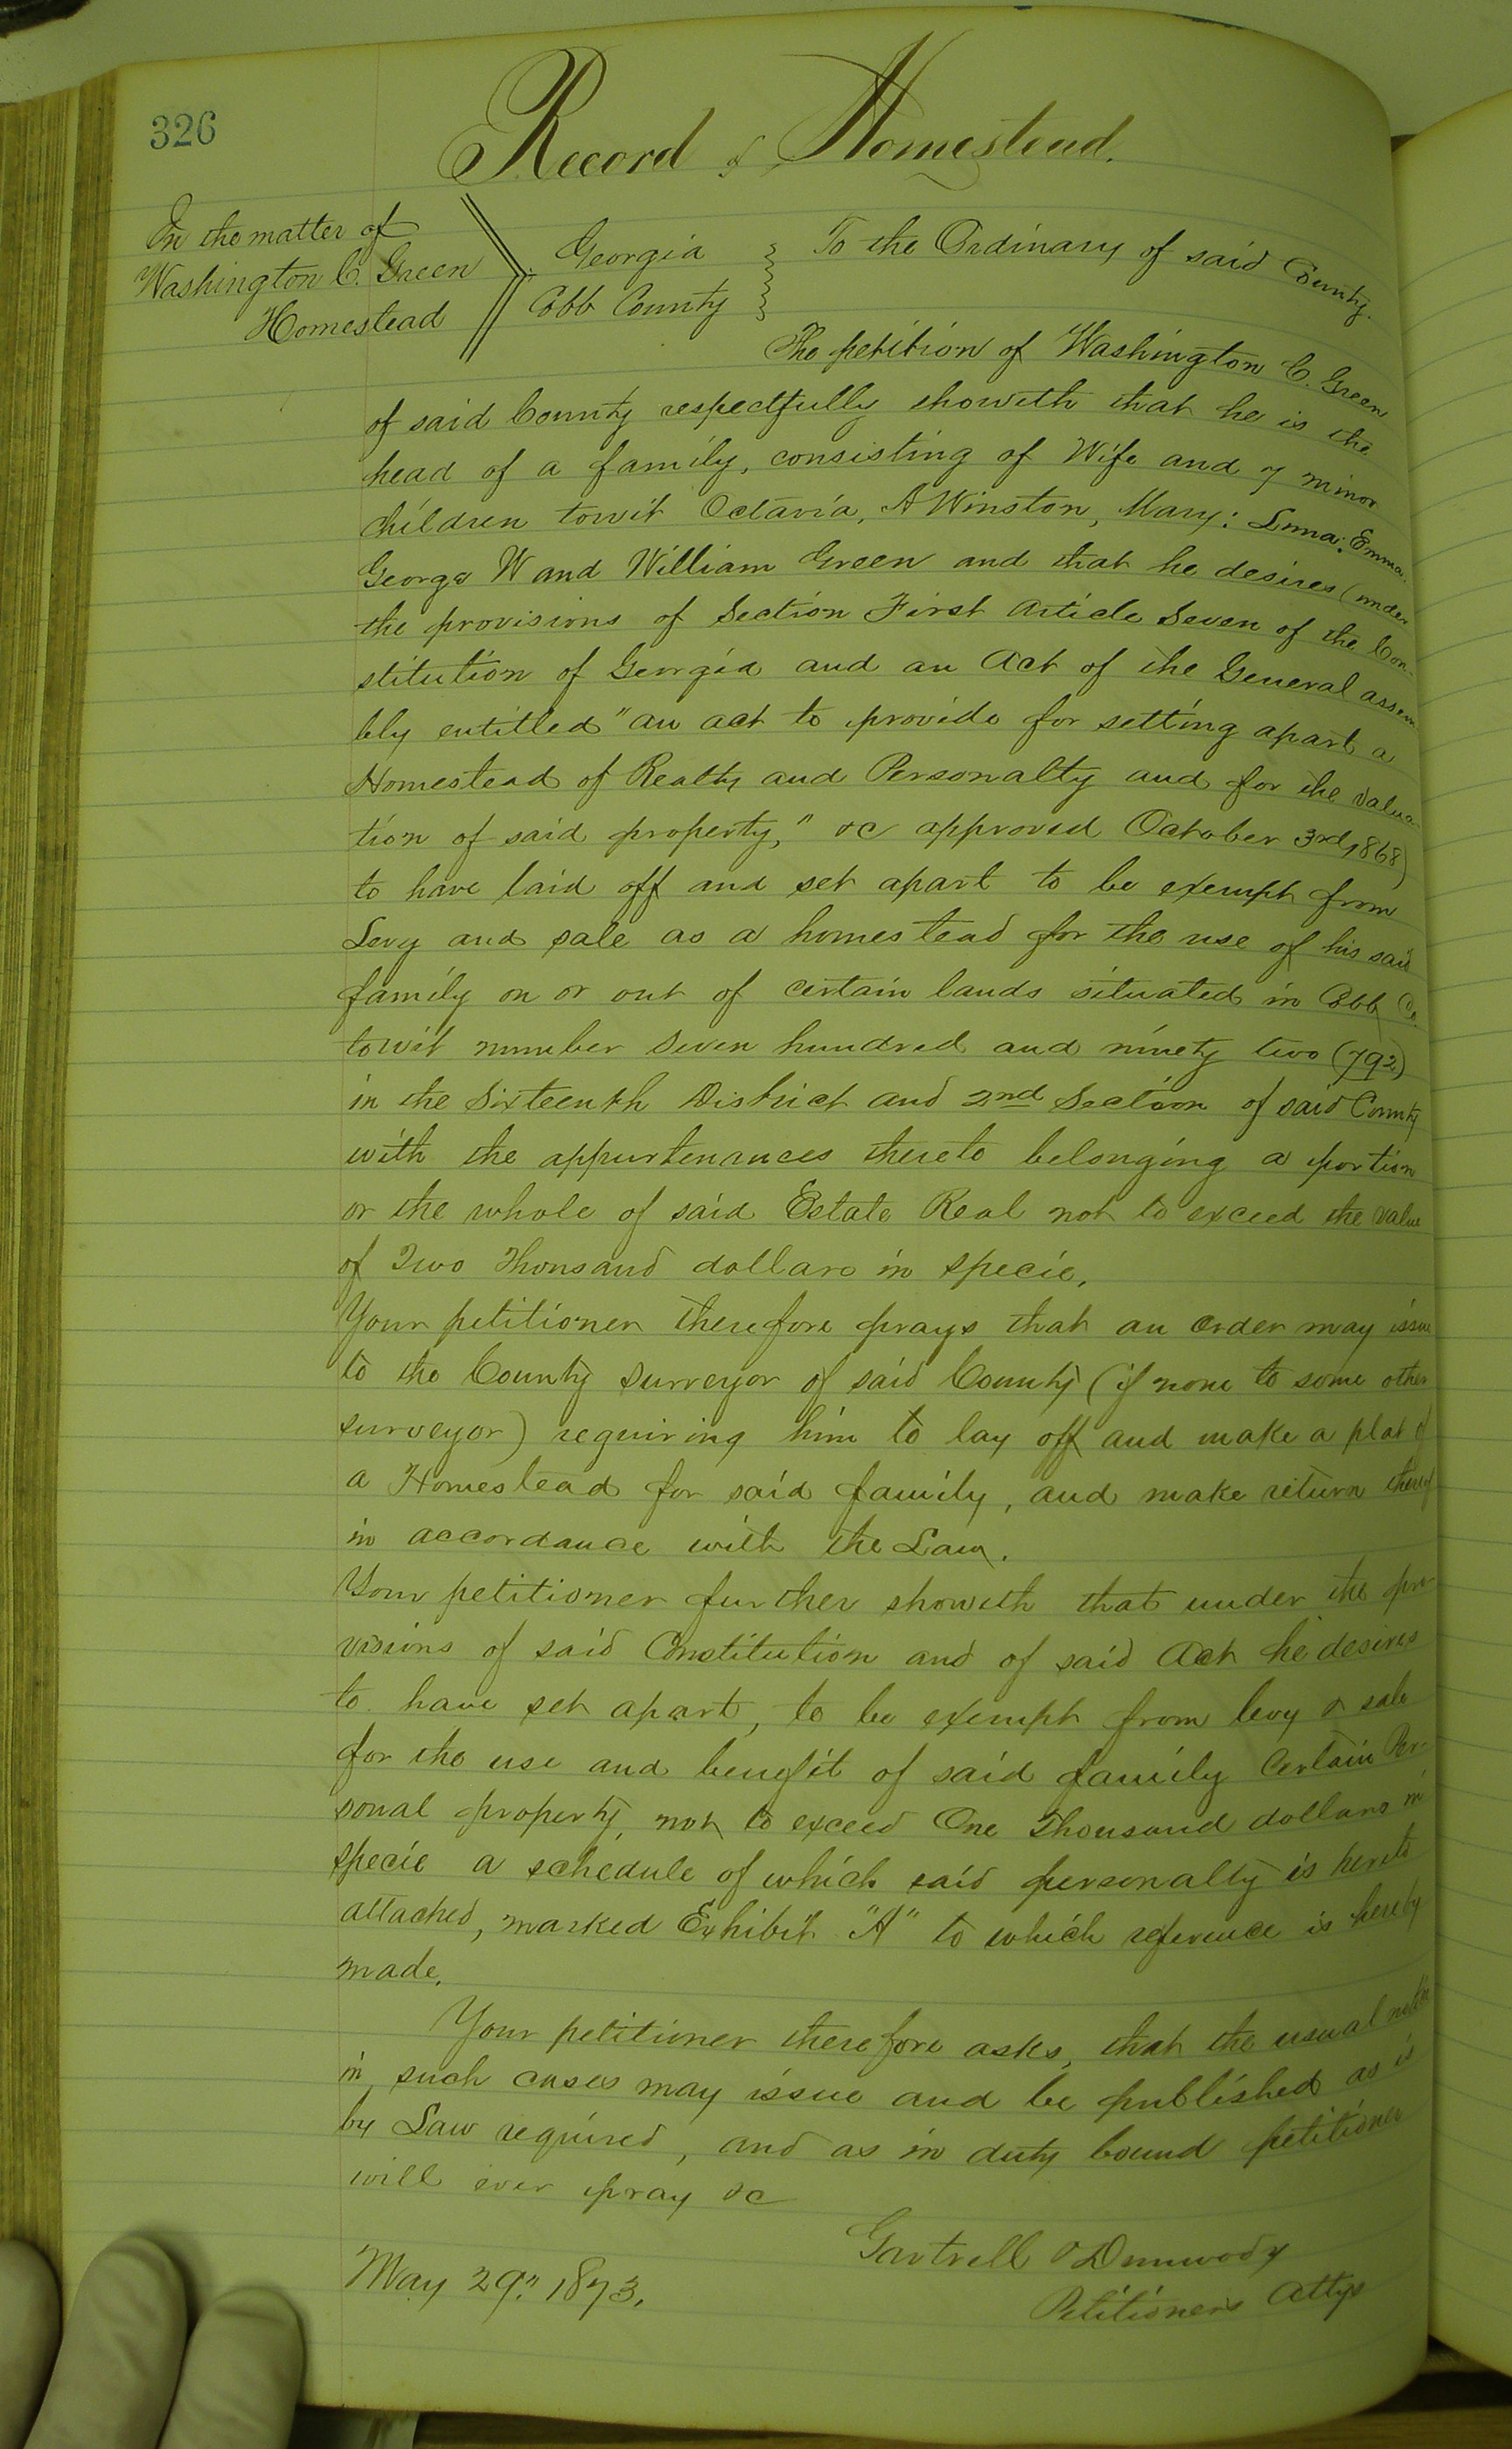 326
Record of Homestead.
In the matter of
Washington C. Green
Homestead
Georgia
Cobb County
To the Ordinary of said County.
The petition of Washington C. Green
of said County respectfully showeth that he is the
head of a family, consisting of Wife and 7 minor
children towit Octavia, A Winston, Mary: Emma.
George W and William Green and that he desires (under
the provisions of Section First Article Seven of the Con-
stitution of Georgia and an Act of the General assem
bly entitled "an act to provide for setting apart a
Homestead of Realty and Personalty and for the valua-
tion of said property," &c approved October 3rd, 1868)
to have laid off and set apart to be exempt from
Levy and sale as a homestead for the use of his said
family on or out of certain lands situated in Cobb Co.
towit number Seven hundred and ninety two (792)
in the Sixteenth District and 2nd Section of said County
with the appurtenances thereto belonging a portion
or the whole of said Estate Real not to exceed the value
of Two Thousand dollars in specie.
Your petitioner therefore prays that an order may issue
to the County Surveyor of said County (if none to some other
surveyor) requiring him to lay off and make a plat of
a Homestead for said family, and make return thereof
in accordance with the Law.
Your petitioner further showeth that under the pro-
visions of said Constitution and of said Act he desires
to have set apart, to be exempt from levy & sale
for the use and benefit of said family Certain Per-
sonal property, not to exceed One Thousand dollars in
specie a schedule of which said personalty is hereto
attached, marked Exhibit "A" to which reference is hereby
made.
Your petitioner therefore asks, that the usual notice
in such cases may issue and be published as is
by Law required, and as in duty bound petitioner
will ever pray &c
Gartrell & Dunwody
Petitioners Attys
May 29" 1873.